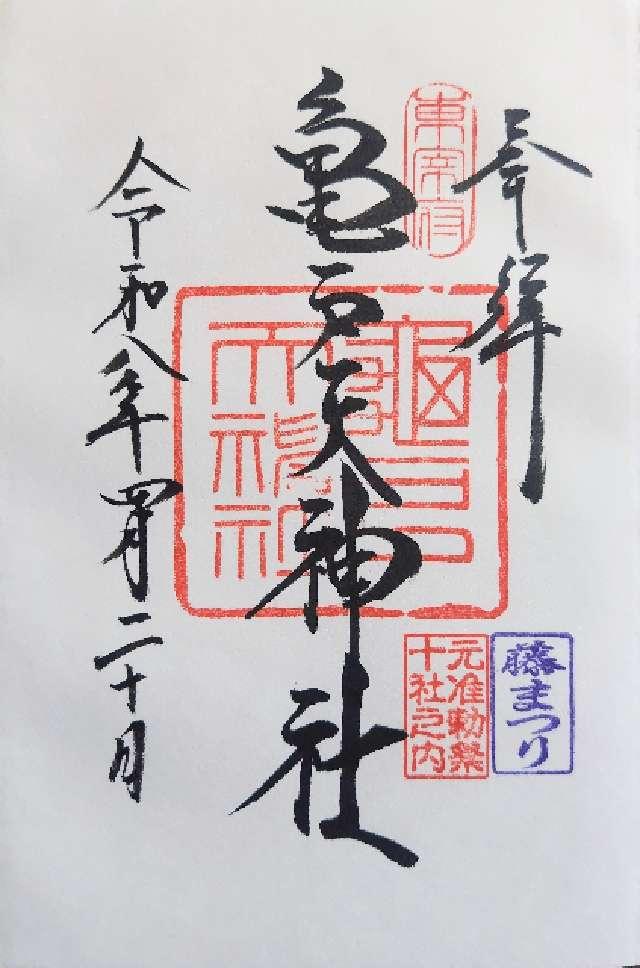 奉拝
東宰府
亀戸天神社
龜戸
天神社
元准勅祭
十社之内
藤まつり
令和八年四月二十日